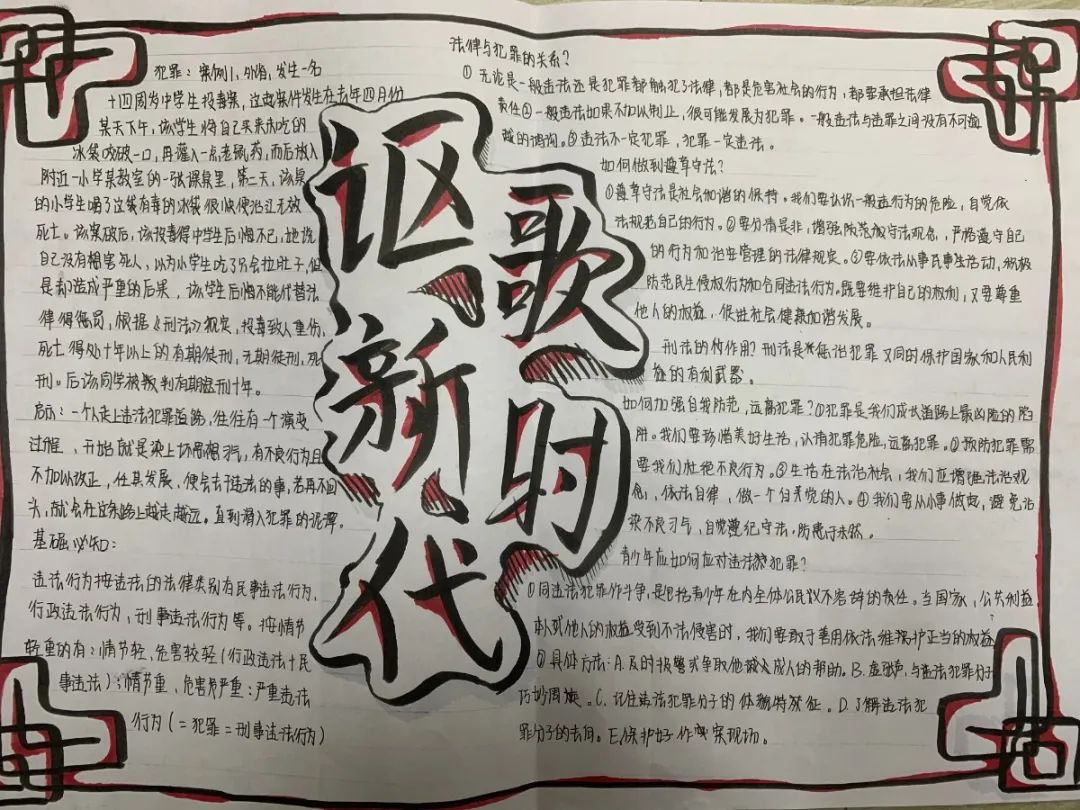 犯罪：案例1，外省，发生一名
十四周岁中学生投毒案，这起案件发生在去年四月份
某天下午，该学生将自己买来未吃的
冰袋咬破一口，再灌入一点老鼠药，而后放入
附近一小学某教室的一张课桌里，第二天，该桌
的小学生喝了这袋有毒的冰袋很快便治过无效
死亡。该案破后，该投毒得中学生后悔不已，她说
自己没有想害死人，以为小学生吃了只会拉肚子，但
是却造成严重的后果，该学生后悔不能代替法
律得惩员，根据《刑法》规定，投毒致人重伤，
死亡得处十年以上的有期徒刑，无期徒刑，死
刑。后该同学被判有期徒刑十年。
启示：一个人走上违法犯罪道路，往往有一个演变
过程，开始就是染上坏习气，有不良行为且
不加以改正，任其发展，便会去干违法的事，若再不回
头，就会在这条路上越走越远。直到滑入犯罪的泥潭。
基础必知：
违法行为按违法的法律类别有民事违法行为，
行政违法行为，刑事违法行为等。按情节
轻重的有：情节轻、危害较轻（行政违法十民
事违法）；情节重、危害严重：严重违法
行为（=犯罪=刑事违法行为）
讴歌
新时
代
法律与犯罪的关系？
①无论是一般违法还是犯罪都触犯了法律，都是危害社会的行为，都要承担法律
责任②一般违法如果不加以制止，很可能发展为犯罪。一般违法与违罪之间没有不可逾
越的鸿沟。③违法不一定犯罪，犯罪一定违法。
如何做到遵章守法？
①遵章守法是社会和谐的保持。我们要认你一般违行为的危险，自觉依
法规范自己的行为。②要分清是非，增强防范做守法观念，严格遵守自己
的行为和治安管理的法律规定。③要依法从事民事生活动，积极
防范民生侵权行为和合同违法行为。既要维护自己的权利，又要尊重
他人的权益，促进社会健康和谐发展。
刑法的作用？刑法是惩治犯罪又同时保护国家和人民利
益的有利武器。
如何加强自我防范，远离犯罪？①犯罪是我们成长道路上最凶险的陷
阱。我们要珍惜美好生活，认清犯罪危险，远离犯罪。②预防犯罪需
要我们杜绝不良行为。③生活在法治社会，我们应增强法治观
念，依法自律，做一个自觉的人。④我们要从小事做起，避免沾
染不良习气，自觉遵纪守法，防患于未然。
青少年应如何应对违法犯罪？
①同违法犯罪作斗争，是包括青少年在内全体公民议不容辞的责任。当国家，公共利益
本人或他人的权益受到不法侵害时，我们要敢于善用依法维护正当的权益
②具体方法：A.及时报警或争取他人成人的帮助。B.虚张声，与违法犯罪分子
巧妙周旋。C.记住违法犯罪分子的体貌特征。D.了解违法犯
罪分子的去向。E.保护好作案现场。